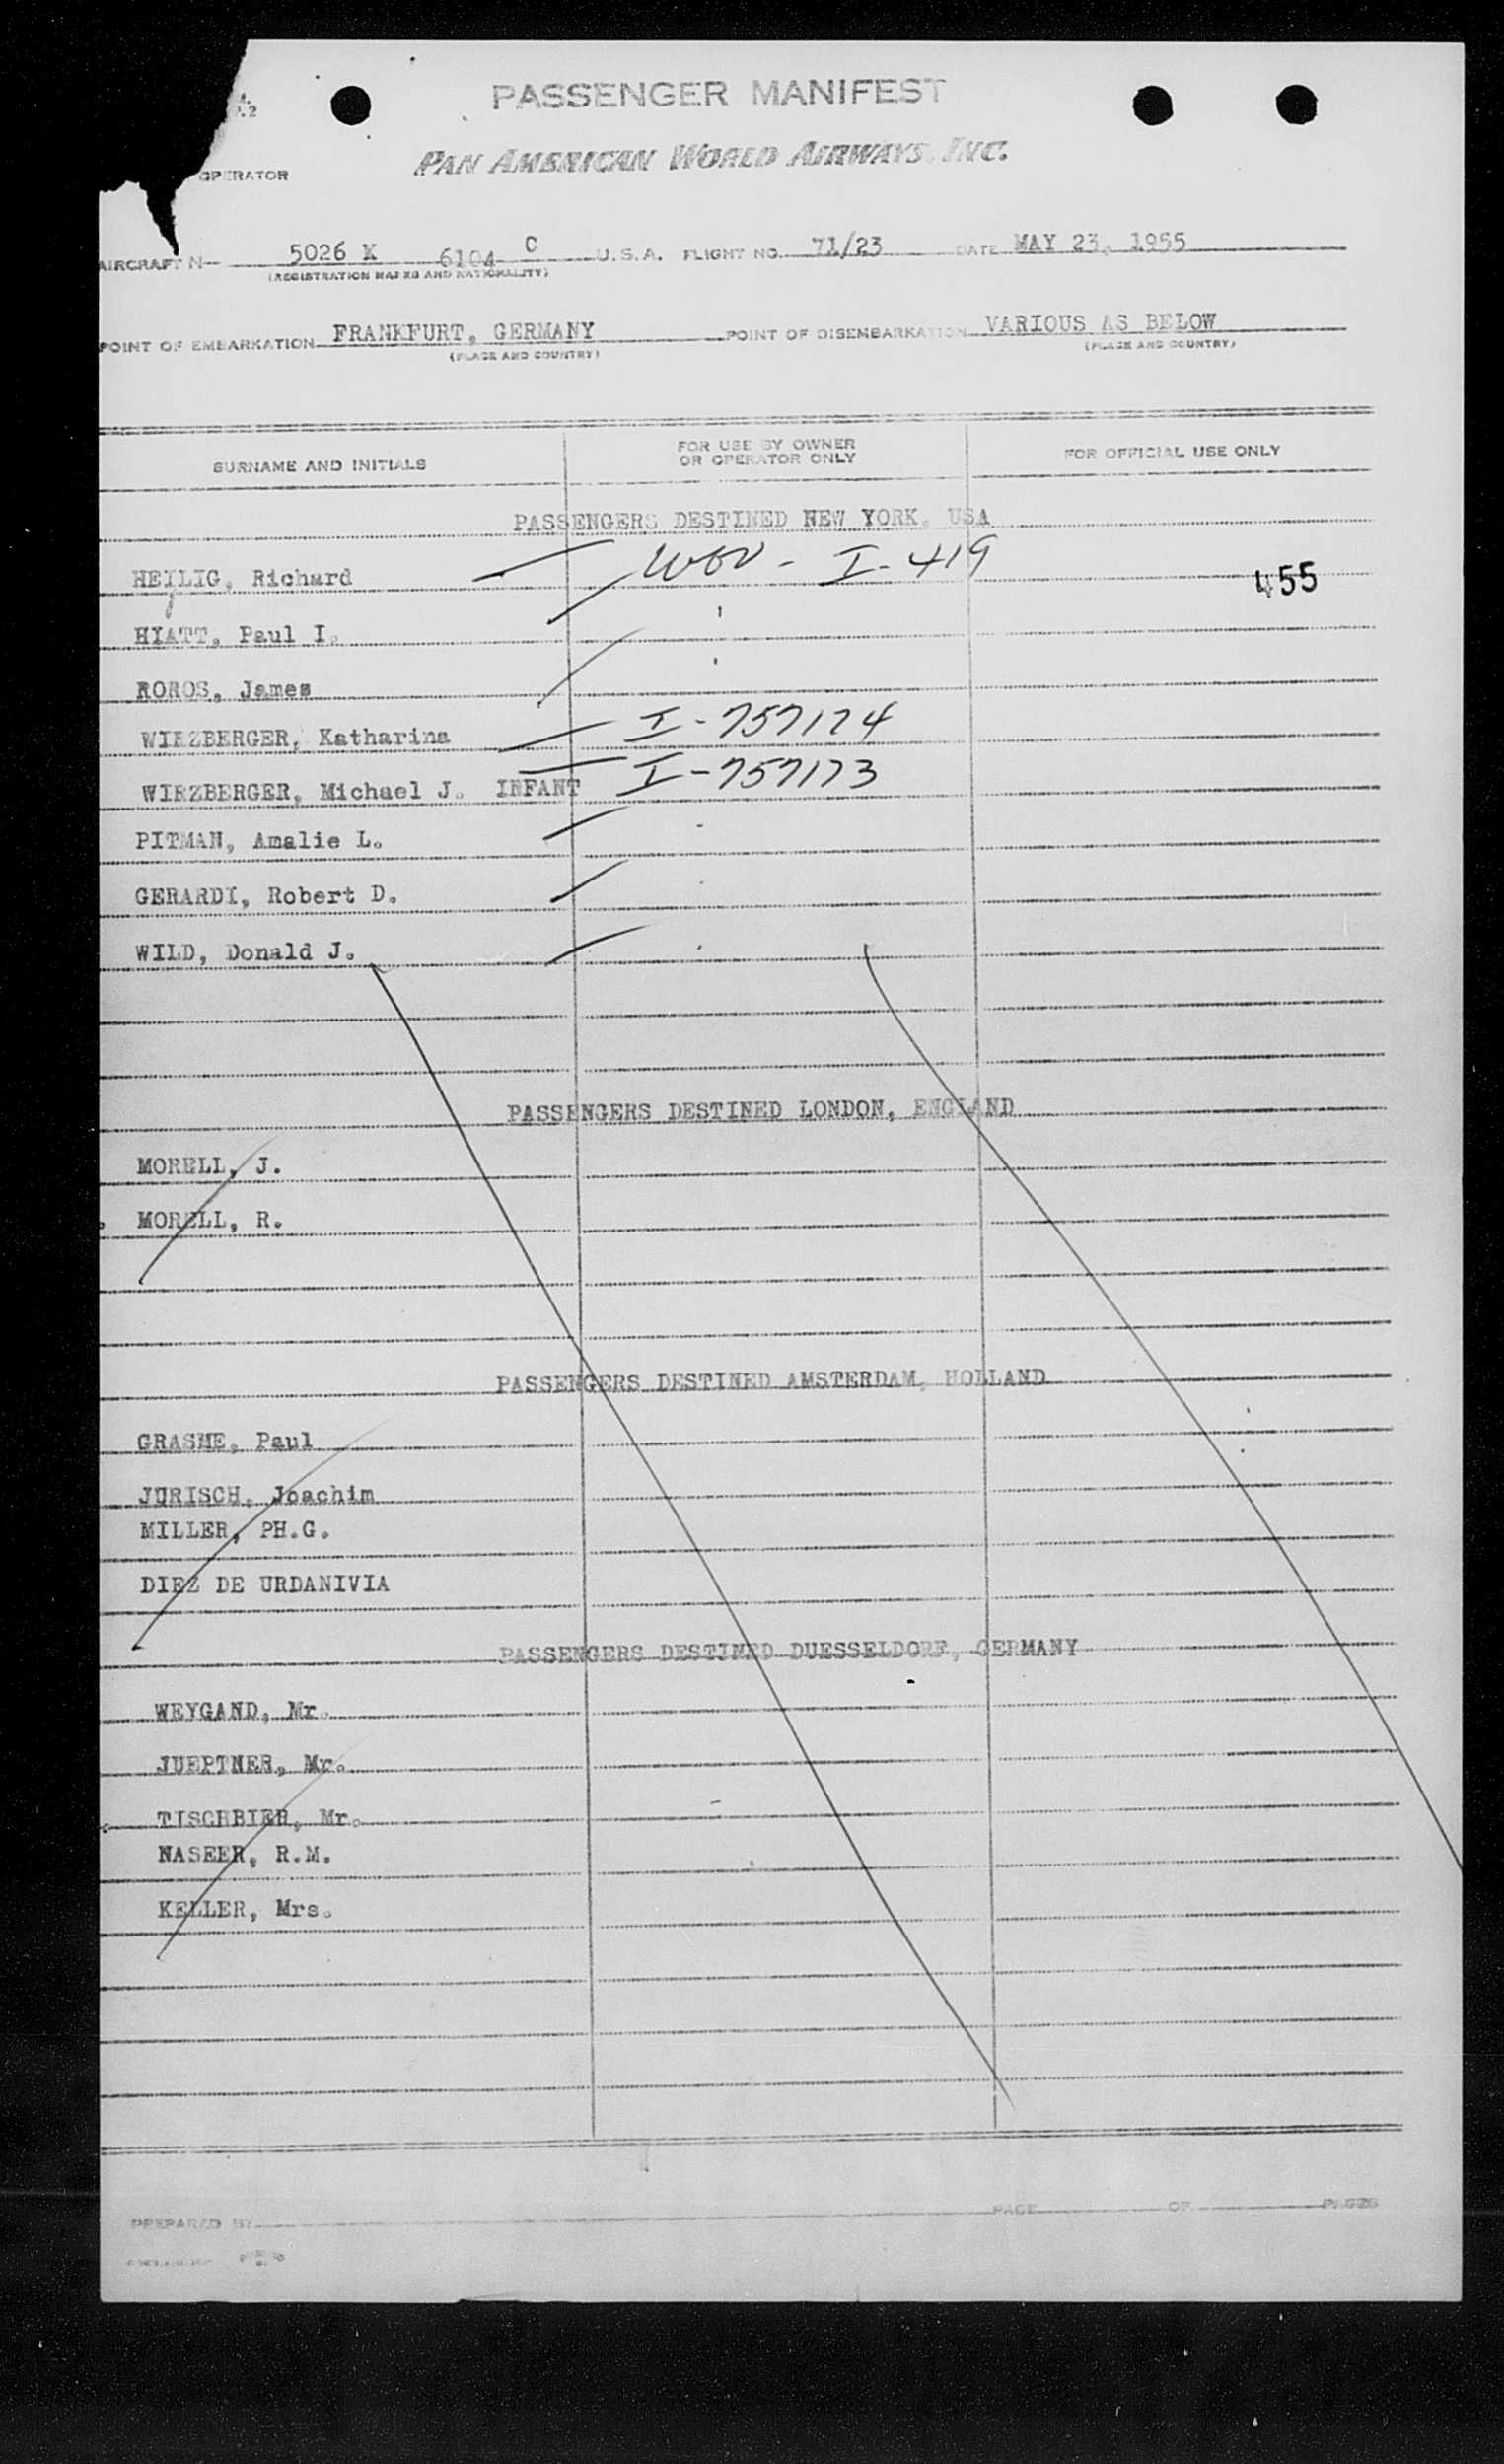 PASSENGER MANIFEST
PAN AMERICAN WORLD AIRWAYS, INC.
OPERATOR
AIRCRAFT N 5026 K 6104 C U.S.A. FLIGHT NO. 71/23 DATE MAY 23, 1955
(REGISTRATION MARKS AND NATIONALITY)
POINT OF EMBARKATION FRANKFURT, GERMANY POINT OF DISEMBARKATION VARIOUS AS BELOW
(PLACE AND COUNTRY) (PLACE AND COUNTRY)
SURNAME AND INITIALS FOR USE BY OWNER OR OPERATOR ONLY FOR OFFICIAL USE ONLY
PASSENGERS DESTINED NEW YORK, USA
HEILIG, Richard I-419 455
HIATT, Paul I.
ROROS, James
WIRZBERGER, Katharina I-757174
WIRZBERGER, Michael J. INFANT I-757173
PITMAN, Amalie L.
GERARDI, Robert D.
WILD, Donald J.
PASSENGERS DESTINED LONDON, ENGLAND
MORELL, J.
MORELL, R.
PASSENGERS DESTINED AMSTERDAM, HOLLAND
GRASME, Paul
JURISCH, Joachim
MILLER, PH.G.
DIEZ DE URDANIVIA
PASSENGERS DESTINED DUESSELDORF, GERMANY
WEYGAND, Mr.
JUEPTNER, Mr.
TISCHBIER, Mr.
NASEER, R.M.
KELLER, Mrs.
PREPARED BY PAGE OF PAGES